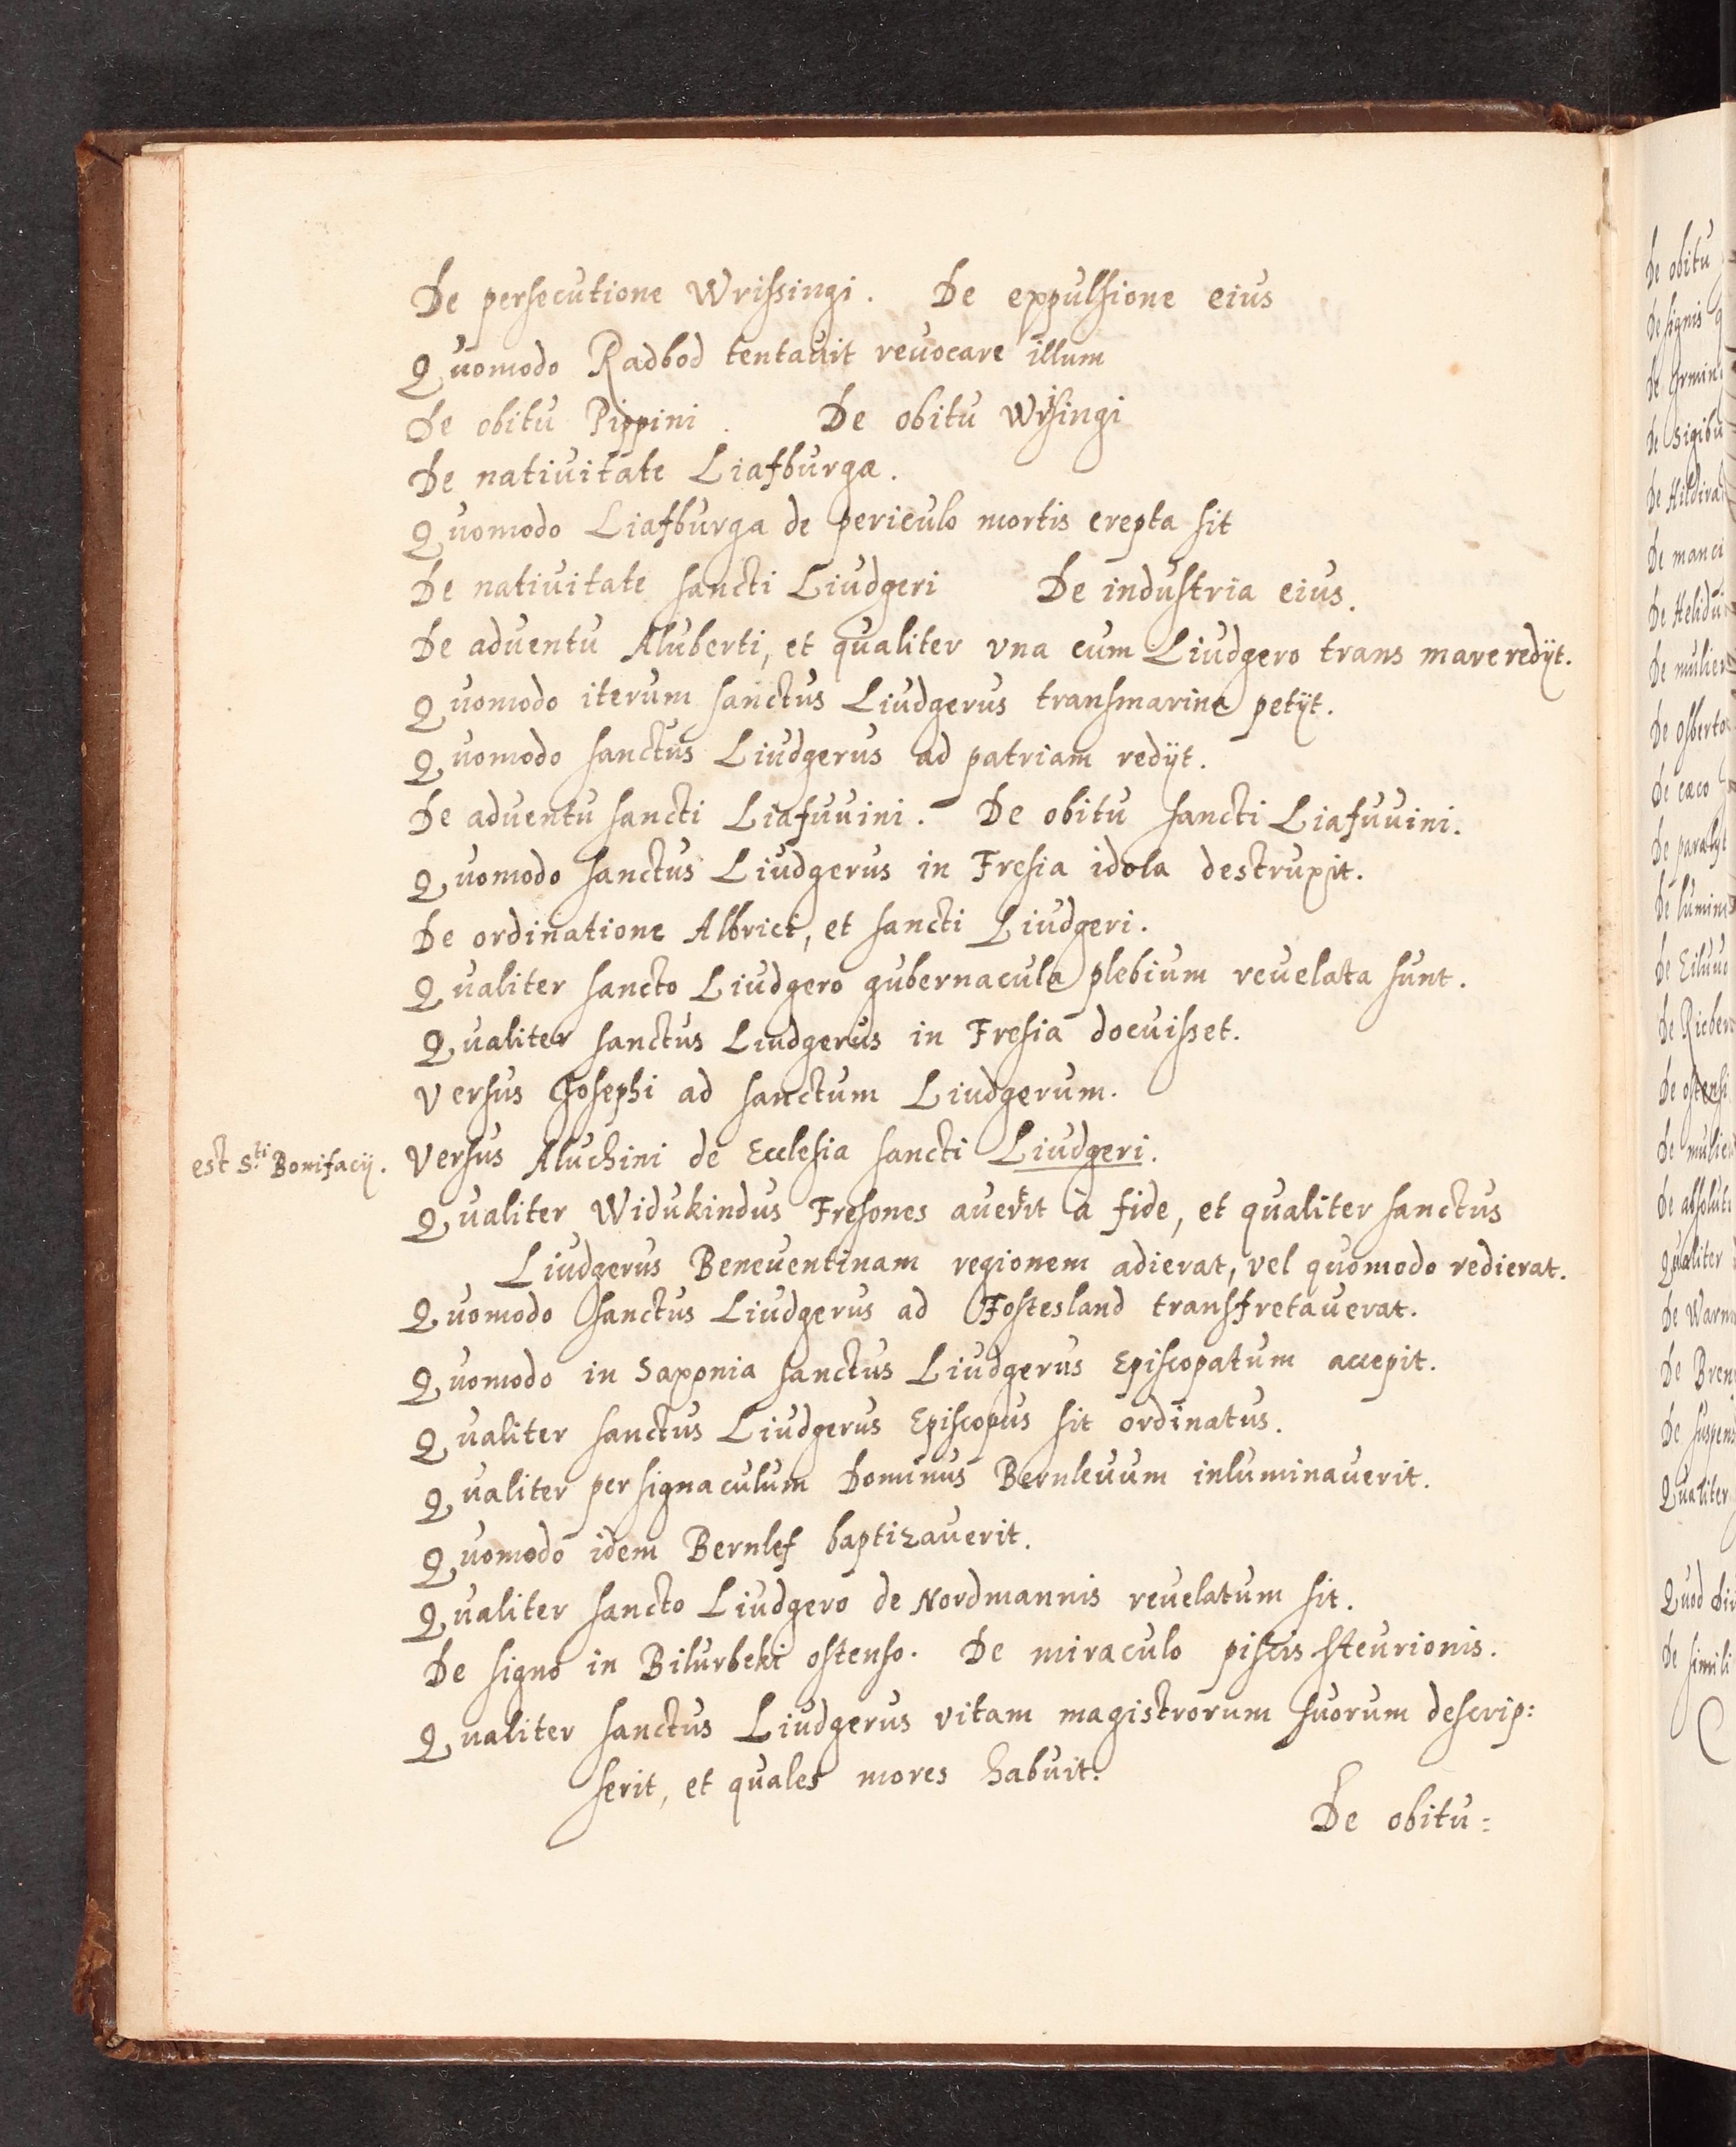 De persecutione Wrissingi. De expulsione eius
Quomodo Radbod tentauit reuocare illum
De obitu Pippini. De obitu Wrisingi
De natiuitate Liafburgæ.
Quomodo Liafburga de periculo mortis erepta sit
De natiuitate sancti Liudgeri De industria eius.
De aduentu Aluberti, et qualiter vna cum Liudgero trans mare redijt.
Quomodo iterum sanctus Liudgerus transmarina petijt.
Quomodo sanctus Liudgerus ad patriam redijt.
De aduentu sancti Liafuuini. De obitu sancti Liafuuini.
Quomodo sanctus Liudgerus in Fresia idola destruxit.
De ordinatione Albrici, et sancti Liudgeri.
Qualiter sancto Liudgero gubernacula plebium reuelata sunt.
Qualiter sanctus Liudgerus in Fresia docuisset.
Versus Josephi ad sanctum Liudgerum.
est S.ti Bonifacij. Versus Aluchini de Ecclesia sancti Liudgeri.
Qualiter Widukindus Fresones auerit à fide, et qualiter sanctus
Liudgerus Beneuentinam regionem adierat, vel quomodo redierat.
Quomodo sanctus Liudgerus ad Fostesland transfretauerat.
Quomodo in Saxonia sanctus Liudgerus Episcopatum accepit.
Qualiter sanctus Liudgerus Episcopus sit ordinatus.
Qualiter per signaculum Dominus Bernleuum inluminauerit.
Quomodo idem Bernlef baptizauerit.
Qualiter sancto Liudgero de Nordmannis reuelatum sit.
De signo in Bilurbeki ostenso. De miraculo piscis steurionis.
Qualiter sanctus Liudgerus vitam magistrorum suorum descrip:
serit, et quales mores habuit.
De obitu:
De obitu
De signis
De manci
De mulier
De Osberto
De cæco
De paralyt
De lumine
De mulie
De absoluti
Qualiter
De suspens
Qualiter
Quod
De simili